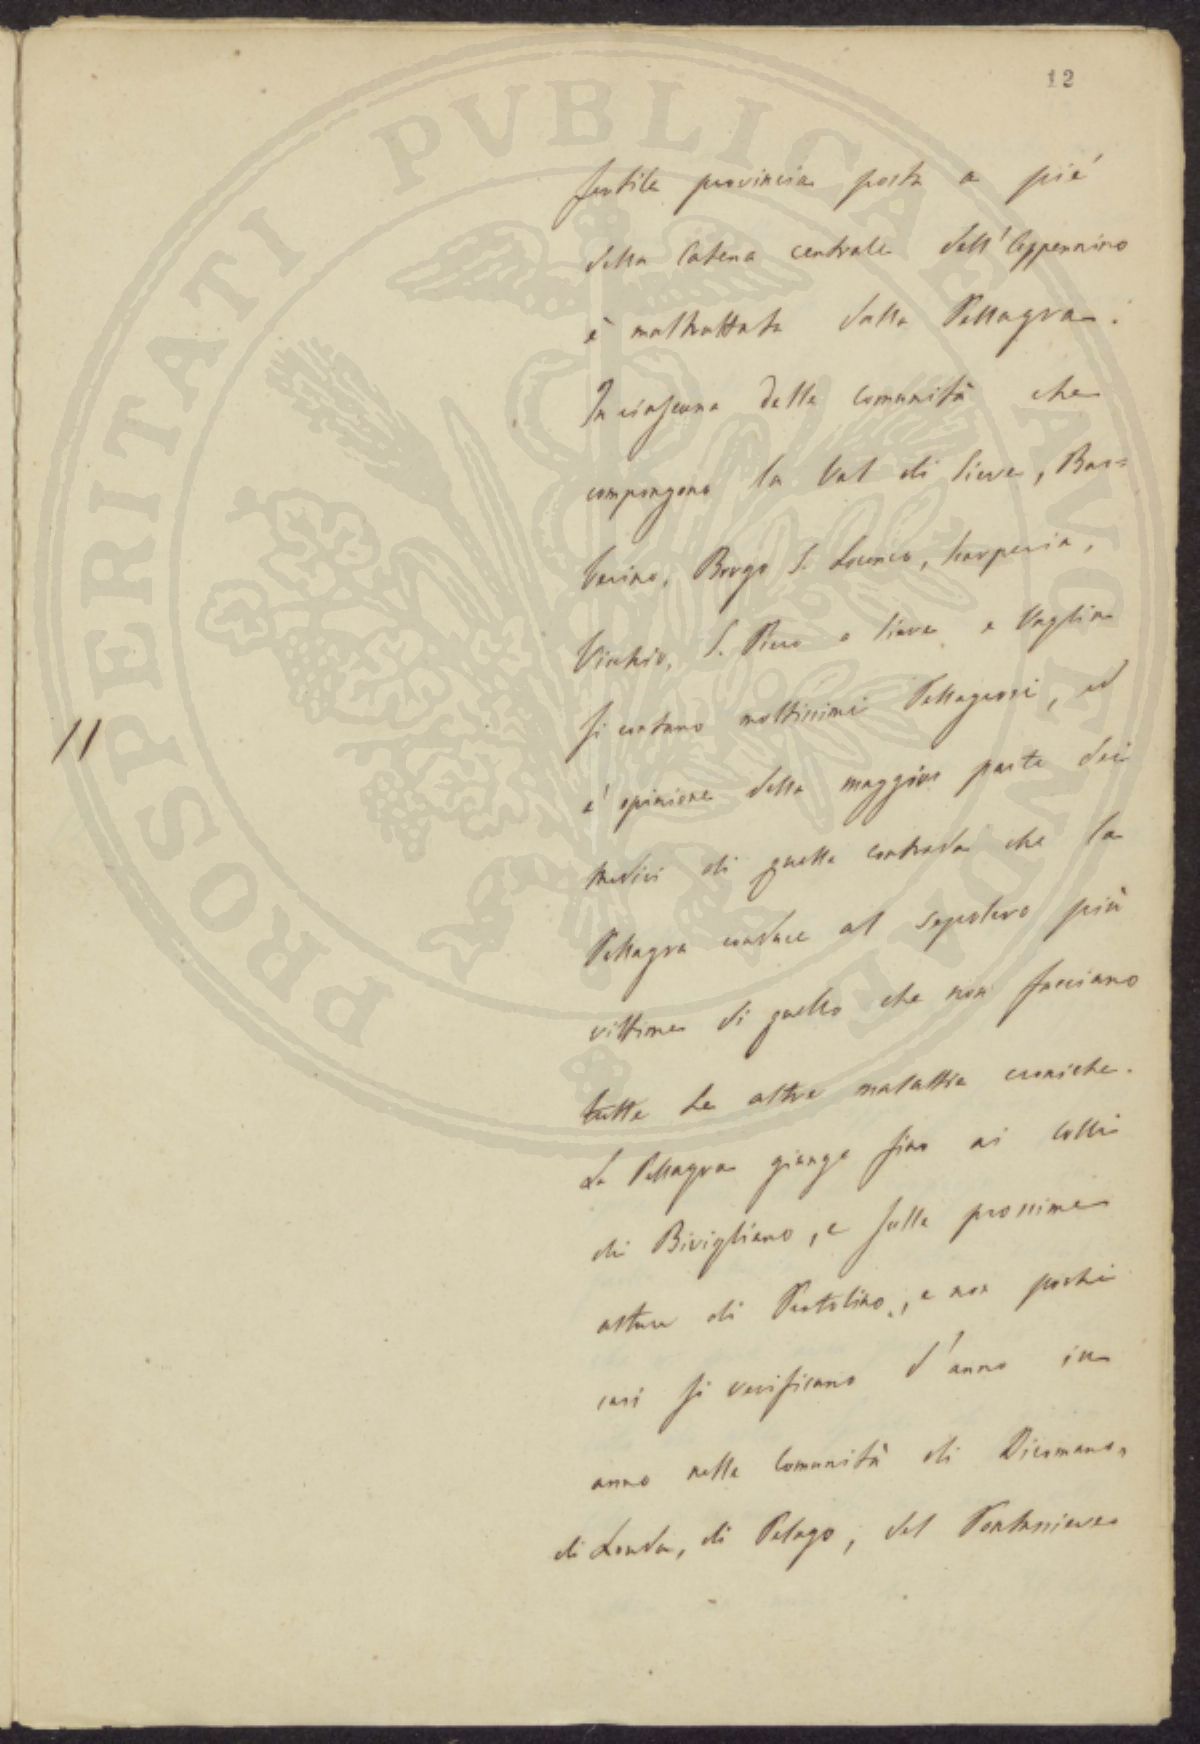 12
fertile provincia posta a pie'
della Catena centrale dell'Appennino
è maltrattata dalla Pellagra.
In ciascuna delle Comunità che
compongono la Val di Sieve, Bar=
berino, Borgo S. Lorenzo, Scarperia,
Vicchio, S. Piero a Sieve e Vaglia
si contano moltissimi Pellagrosi, ed
e' opinione della maggior parte dei
Medici di quella contrada che la
Pellagra conduce al sepolcro più
vittime di quello che non facciano
tutte Le altre malattie croniche.
La Pellagra giunge fino ai Colli
di Bivigliano, e sulle prossime
alture di Pratolino, e non pochi
casi si verificano d'anno in
anno nelle Comunità di Dicomano,
di Londa, di Pelago, del Pontassieve
11
PROSPERITATI PVBLICAE AVGENDAE